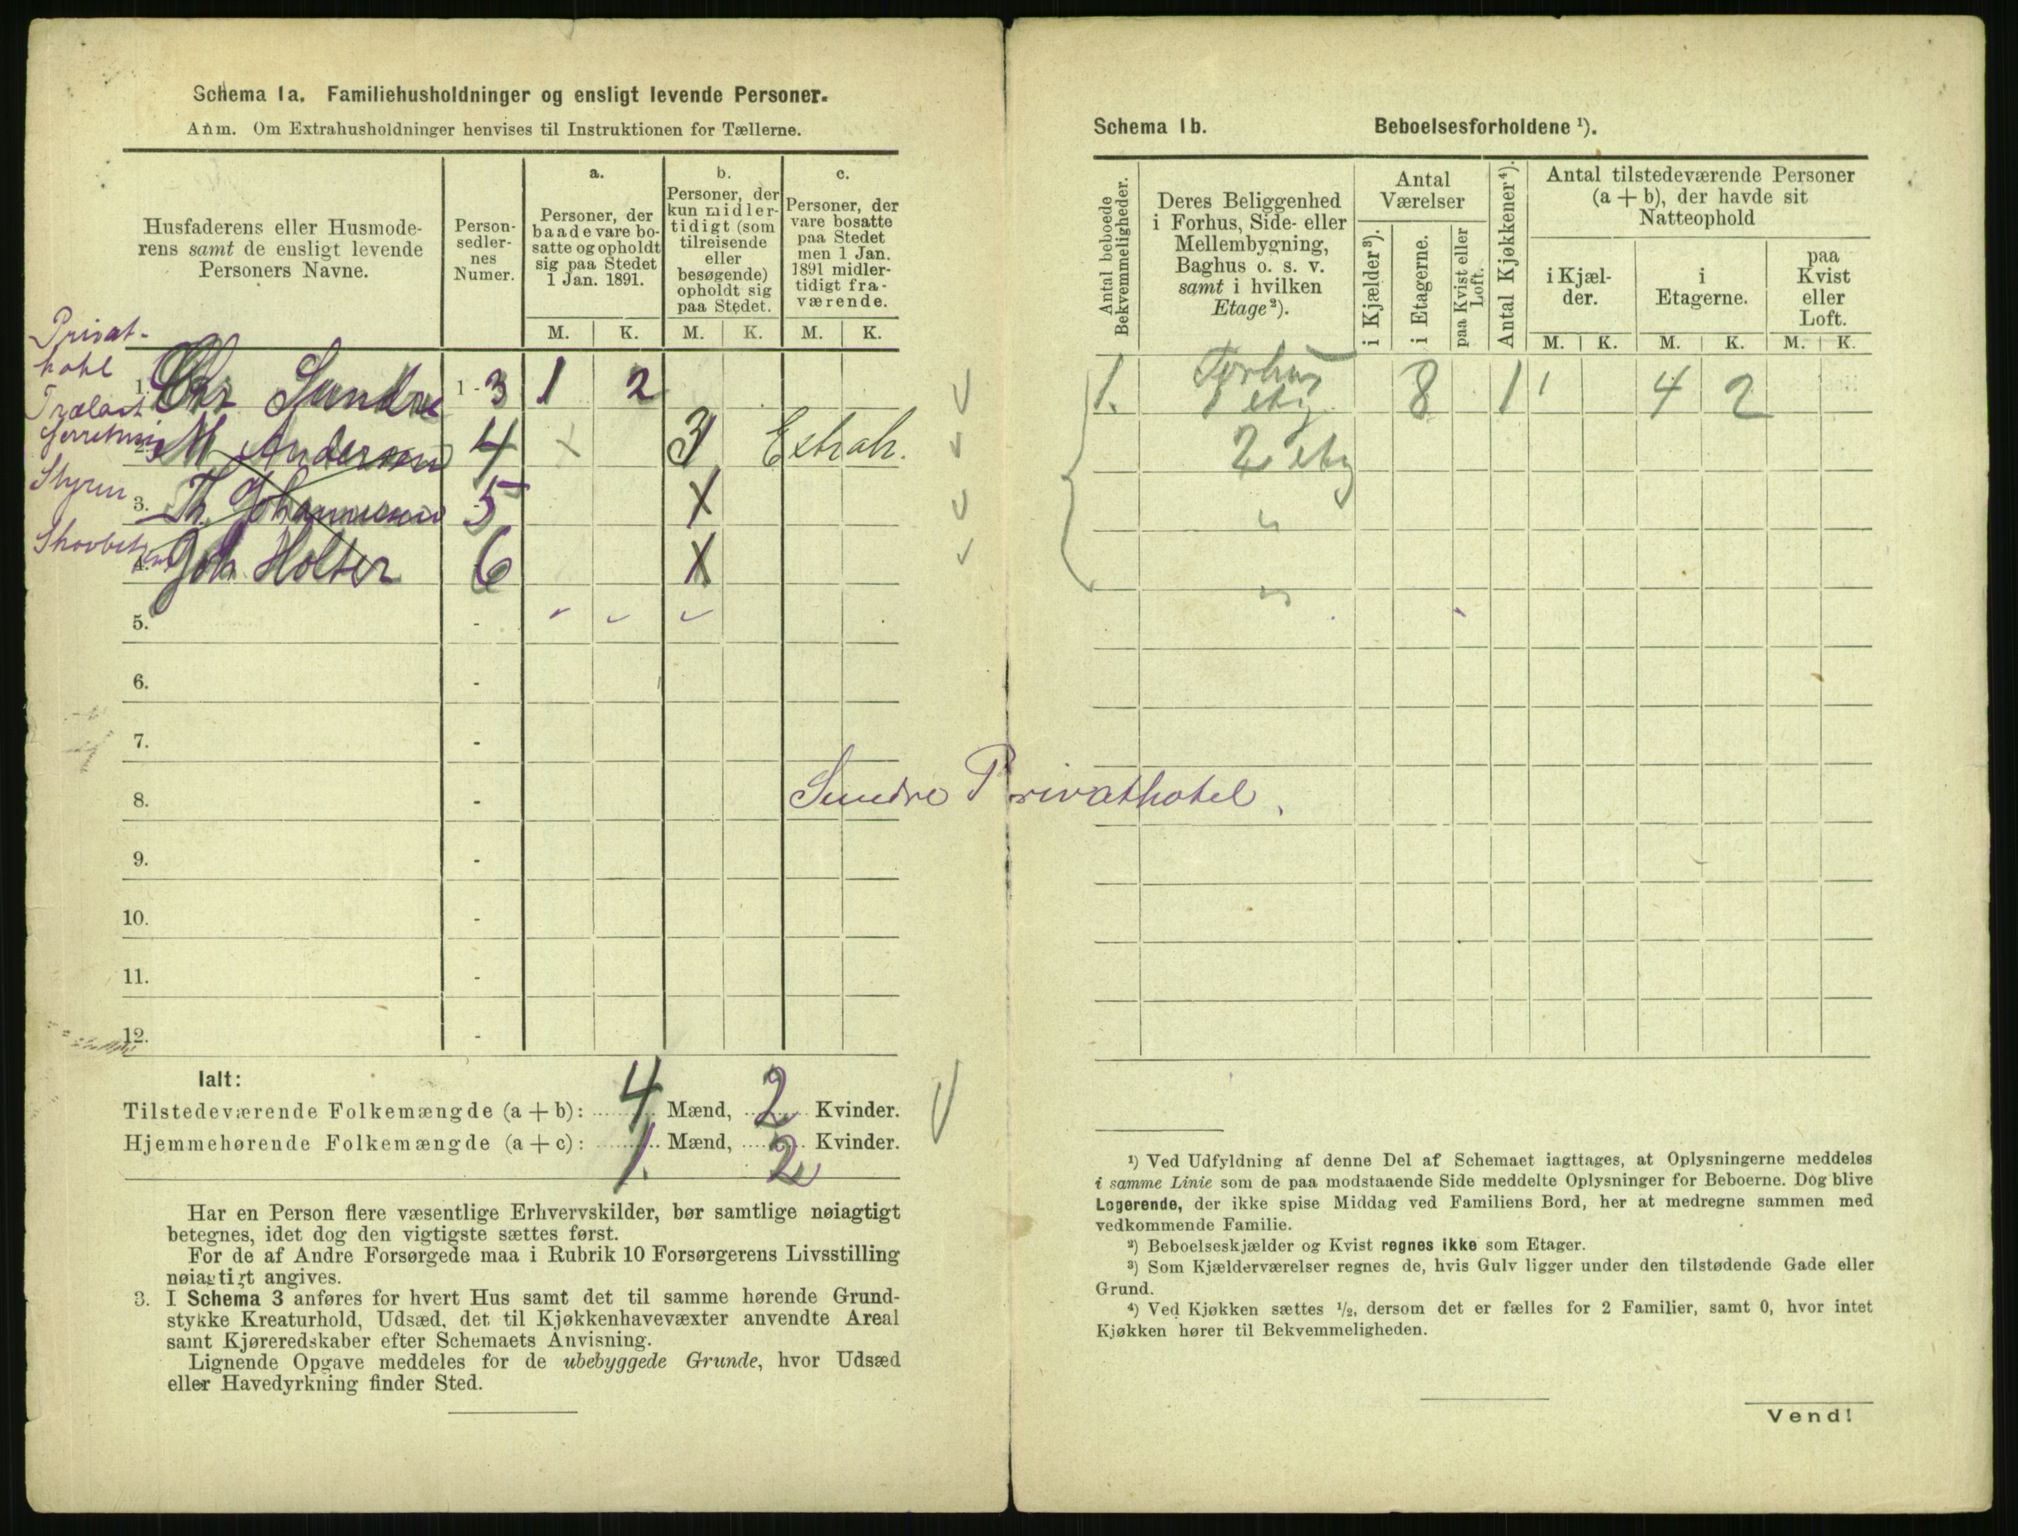 Schema 1a. Familiehusholdninger og ensligt levende Personer.
Anm. Om Extrahusholdninger henvises til Instruktionen for Tællerne.
Husfaderens eller Husmoderens samt de ensligt levende Personers Navne.
Personsedlernes Numer.
a.
Personer, der baade vare bosatte og opholdt sig paa Stedet 1 Jan. 1891.
b.
Personer, der kun midlertidigt (som tilreisende eller besøgende) opholdt sig paa Stedet.
c.
Personer, der vare bosatte paa Stedet men 1 Jan. 1891 midlertidigt fraværende.
M. K. M. K. M. K.
Privathotel
1. Chr Sundre 1 - 3 1 2
Trælast
2. M Anderson 4 3 Extrah.
Styrm
3. Th. Johannesen 5 X
4. Joh. Holter 6 X
5. -
6. -
7. -
8. -
9. -
10. -
11. -
12. -
Sundre Privathotel.
Ialt:
Tilstedeværende Folkemængde (a + b): 4 Mænd, 2 Kvinder.
Hjemmehørende Folkemængde (a + c): 1. Mænd, 2 Kvinder.
Har en Person flere væsentlige Erhvervskilder, bør samtlige nøiagtigt
betegnes, idet dog den vigtigste sættes først.
For de af Andre Forsørgede maa i Rubrik 10 Forsørgerens Livsstilling
nøiagtigt angives.
3. I Schema 3 anføres for hvert Hus samt det til samme hørende Grund-
stykke Kreaturhold, Udsæd, det til Kjøkkenhavevæxter anvendte Areal
samt Kjøreredskaber efter Schemaets Anvisning.
Lignende Opgave meddeles for de ubebyggede Grunde, hvor Udsæd
eller Havedyrkning finder Sted.
Schema 1b. Beboelsesforholdene ¹).
Antal beboede Bekvemmeligheder.
Deres Beliggenhed i Forhus, Side- eller Mellembygning, Baghus o. s. v. samt i hvilken Etage ²).
Antal Værelser
i Kjælder ³).
i Etagerne.
paa Kvist eller Loft.
Antal Kjøkkener ⁴).
Antal tilstedeværende Personer (a + b), der havde sit Natteophold
i Kjælder.
i Etagerne.
paa Kvist eller Loft.
M. K. M. K. M. K.
1. Forhus 1 etg. 8 1 4 2
2 etg
"
"
¹) Ved Udfyldning af denne Del af Schemaet iagttages, at Oplysningerne meddeles
i samme Linie som de paa modstaaende Side meddelte Oplysninger for Beboerne. Dog blive
Logerende, der ikke spise Middag ved Familiens Bord, her at medregne sammen med
vedkommende Familie.
²) Beboelseskjælder og Kvist regnes ikke som Etager.
³) Som Kjælderværelser regnes de, hvis Gulv ligger under den tilstødende Gade eller
Grund.
⁴) Ved Kjøkken sættes ½, dersom det er fælles for 2 Familier, samt 0, hvor intet
Kjøkken hører til Bekvemmeligheden.
Vend!